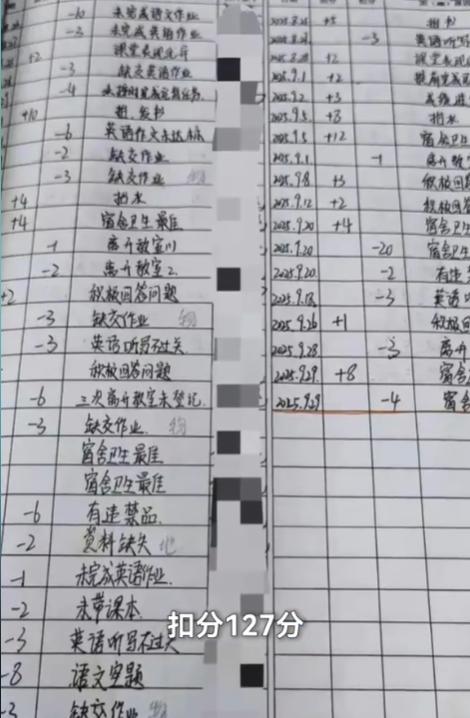 -10 未完成语文作业
-3 未完成英语作业
+2 课堂表现优异
-3 缺交英语作业
-4
+10
-6 英语作文未达标
-2 缺交作业
-3 缺交作业 物
+4 抬水
+4 宿舍卫生最佳
-1 离开教室
-2 离开教室2
+2 积极回答问题
-3 缺交作业 物
-3 英语听写不过关
积极回答问题
-6 三次离开教室未登记
-3 缺交作业 物
宿舍卫生最佳
宿舍卫生最佳
-6 有违禁品
-2 资料缺失 地
-1 未完成英语作业
-2 未带课本
-3 英语听写不过关
-8 语文空题
缺交作业
+5
-3 英语听写
+2 课堂表现
2025.9.1 +2
2025.9.2 +3
2025.9.5 +3 抬水
2025.9.5 +12 宿舍卫生
2025.9.1 -1 离开教
2025.9.8 +3 积极回答
2025.9.12 +2 积极回答
2025.9.20 +4 宿舍卫生
2025.9.20 -20 宿舍卫
2025.9.20 -2 有违
2025.9.18 -3 英语听
2025.9.26 +1 积极回
2025.9.28 -3 离开
2025.9.29 +8 宿舍
2025.9.29 -4 宿舍
扣分127分